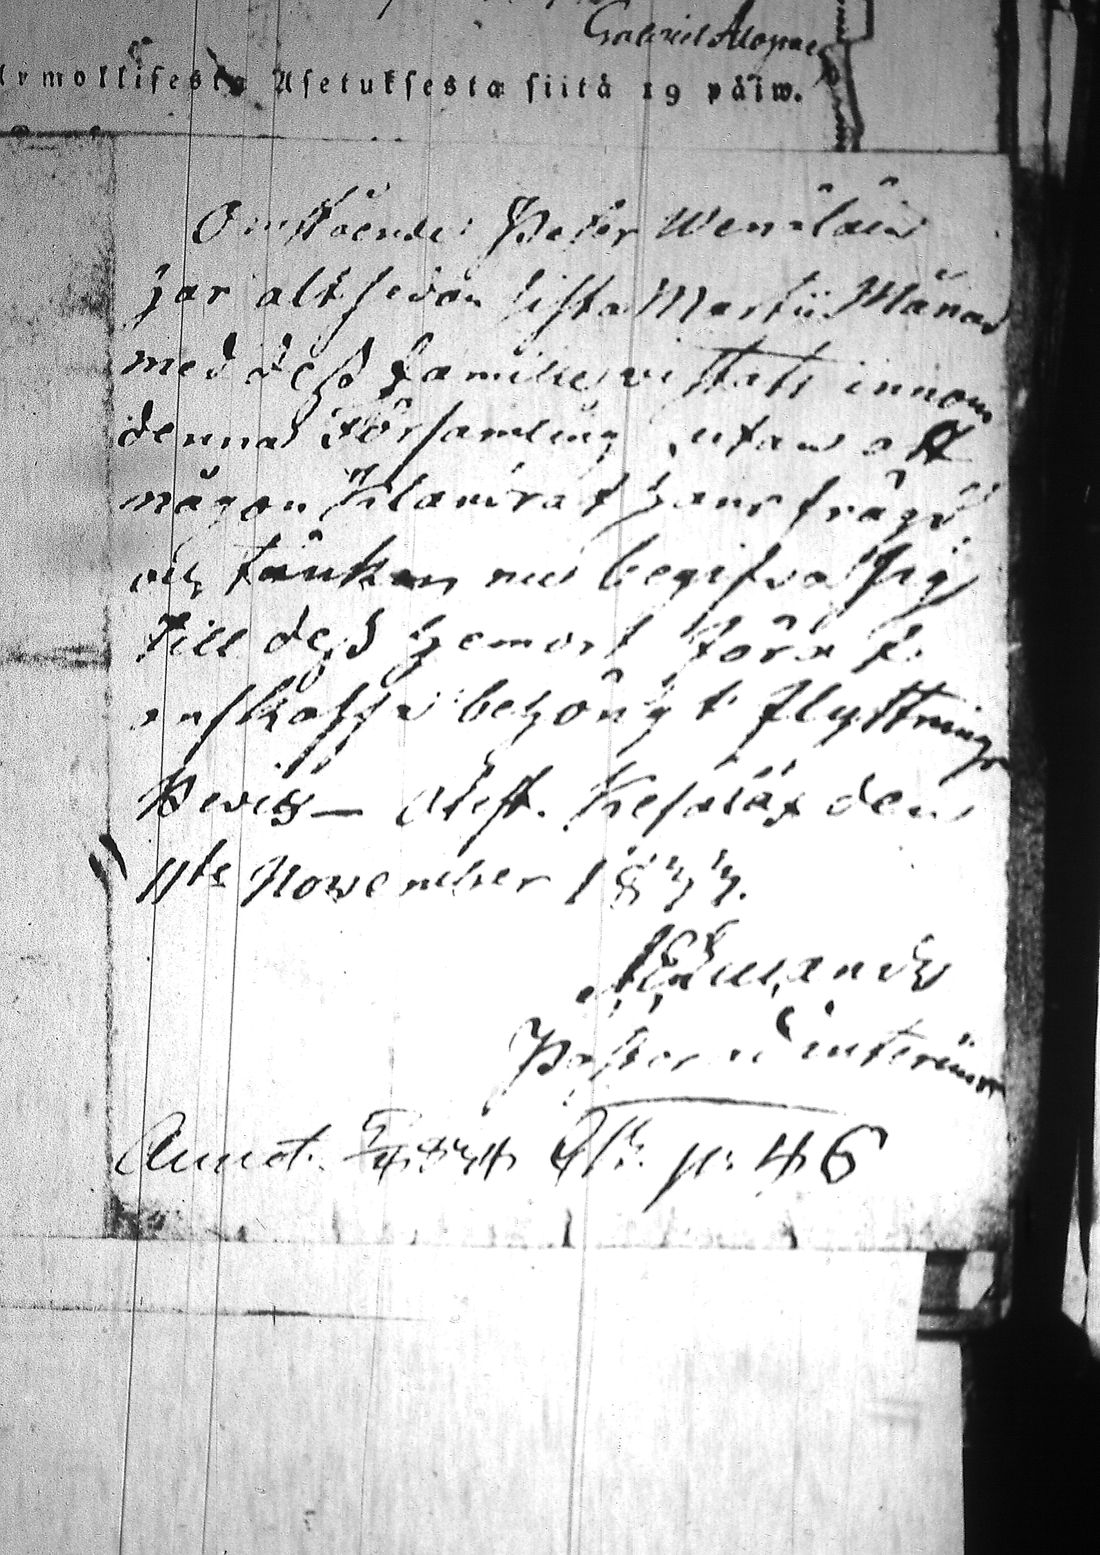 Gabriel Alopae
Armollisesta Asetuksesta siitä 19 päiw.
Omstående Peter Wenäläin
har alt sedan sista Martii Månad
med dess famille vistats innom
denna Församling, utan att
någon klandrat hans frägd
och tänker nu begifva sig
till dess hemort för at
anskaffa behörigt flyttnings
Bevis — Attest. Kesälax den
11te November 1833.
Pastor ad interim
Annot. p: 46